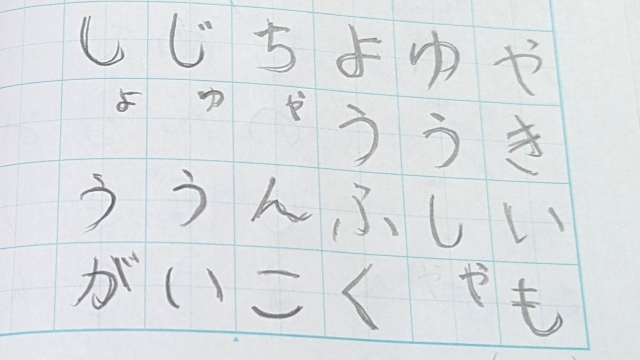 やきいも
ゆうしゃ
ようふく
ちゃんこ
じゅうい
しょうが